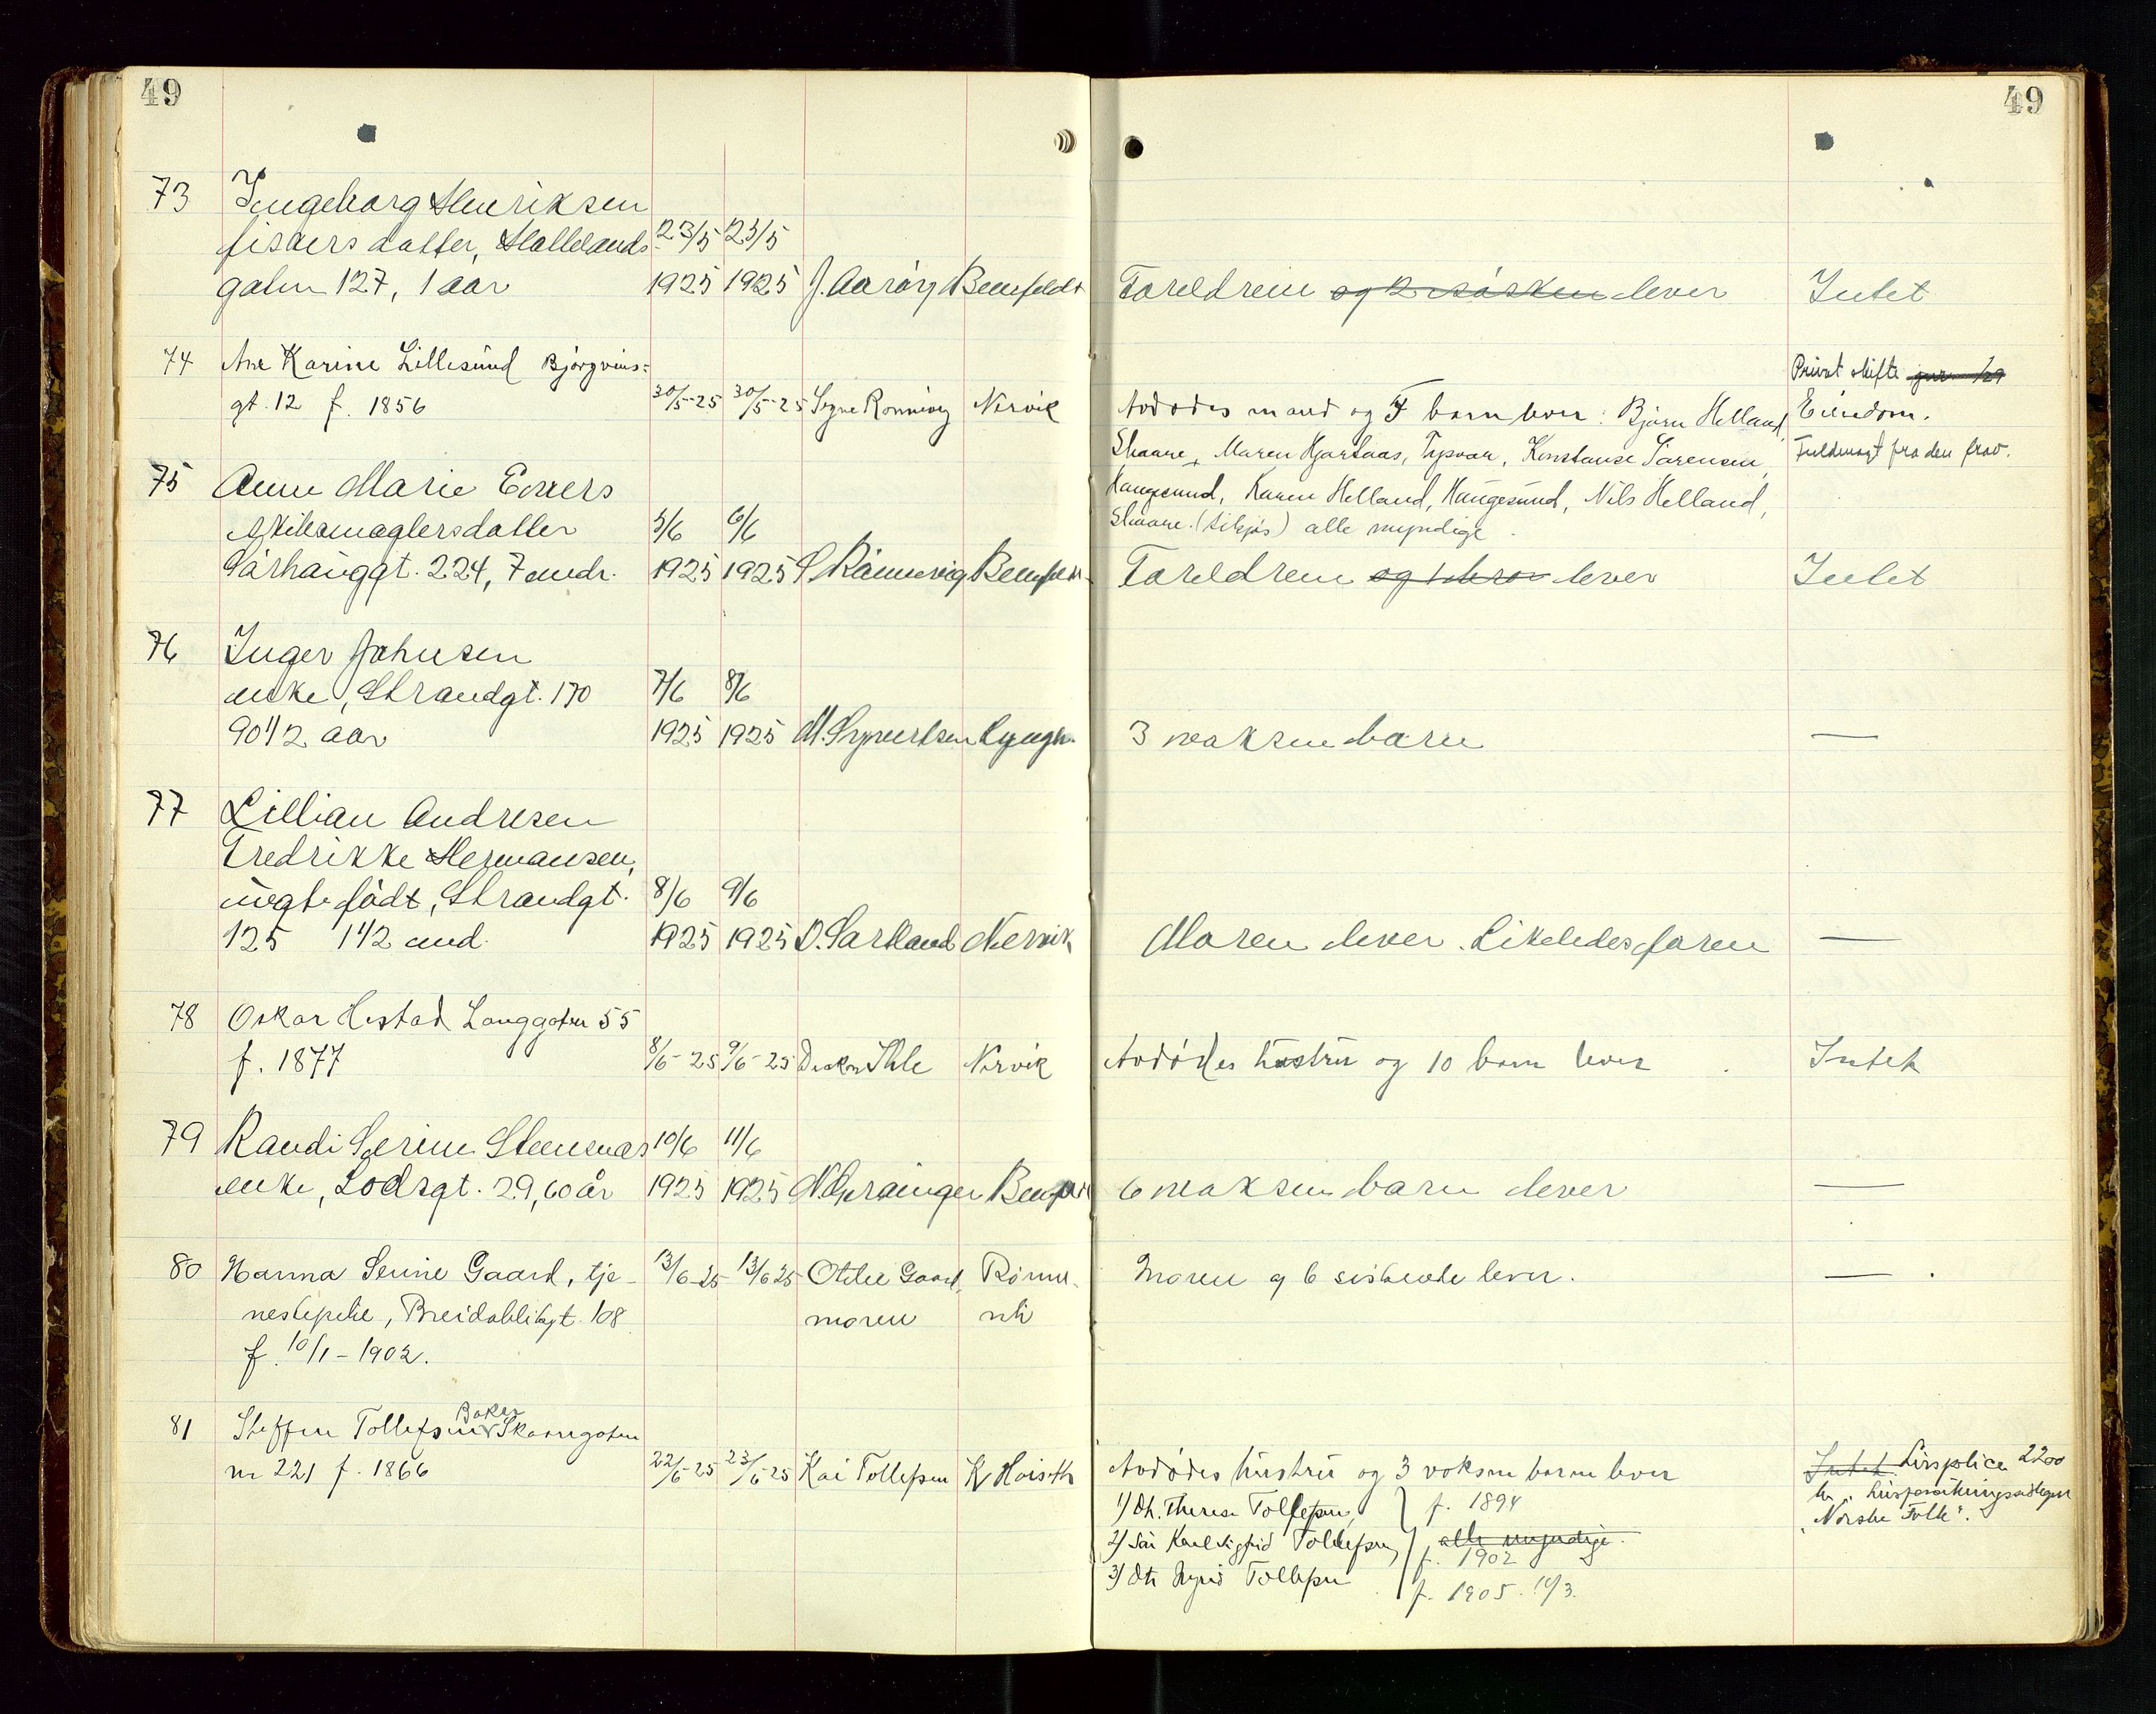 49
49
73 Ingeborg Henriksen
fiskersdatter, Hallelands
23/5 23/5
gaten 127, 1 aar 1925 1925 J. Aarög Bennfeldt Foreldrene og 2 søsken lever Intet
74 Ane Karine Lillesund Bjørgvins-
gt. 12 f. 1856 30/5-25 30/5-25 Signe Rønnevig Nervik
Avdødes mand og 5 barn lever: Bjørn Helland,
Skaare, Maren Hjartaas, Tysvær, Konstanse Sørensen,
Haugesund, Karen Helland, Haugesund, Nils Helland,
Skaare. (tilsjøs) alle myndige.
Privat skifte
Eiendom.
Fuldmagt fra den frav.
75 Anne Marie Evers
skibsmæglersdatter 5/6 6/6
Sørhauggt. 224, 7 mdr. 1925 1925 S. Rønnevig Foreldrene lever Intet
76 Inger Johnsen
enke, Strandgt. 170 7/6 8/6
90 1/2 aar 1925 1925 M. Syvertsen 3 voksne barn —
77 Lillian Andresen
Fredrikke Hermansen,
uegte født, Strandgt. 8/6 9/6
125 1 1/2 mnd. 1925 1925 Nervik Moren lever. Likeledes faren —
78 Oskar Hestad Langgaten 55
f. 1877 8/6-25 9/6-25 Ihle Nervik Avdødes hustru og 10 barn lever Intet
79 Randi Serine Steensnæs 10/6 11/6
enke, Lodsgt. 29, 60 år 1925 1925 6 voksne barn lever —
80 Hanna Serine Gaard, tje- 13/6-25 13/6 25 Otilie Gaard, Moren og 6 søskende lever. —
nestepike, Breidablikgt. 108 moren
f. 10/1-1902.
81 Steffen Tollefsen Baker Skaaregaten
nr 221 f. 1866 22/6-25 23/6-25 Kai Tollefsen K Hoiseth
Avdødes hustru og 3 voksne barn lever
1) Dt. Therese Tollefsen, f. 1894
2) Søn Karl Sigfrid Tollefsen, alle myndige.
f. 1902
3) Dt. Ingrid Tollefsen f. 1905. 10/3.
Intet. Livspolice 2200
kr i Livsforsikringsselskapet
"Norske Folk".